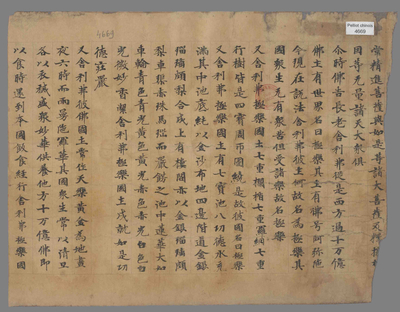 4669
Pelliot chinois
4669
常精進菩薩與如是等諸大菩薩及釋提桓
因等无量諸天大衆俱
尒時佛告長老舍利弗從是西方過十万億
佛土有世界名曰極樂其土有佛号阿弥陁
今現在說法舍利弗彼土何故名為極樂其
國衆生无有衆苦但受諸樂故名極樂
又舍利弗極樂國土七重欄楯七重羅網七重
行樹皆是四寶周帀圍繞是故彼國名曰極樂
又舍利弗極樂國土有七寶池八功德水充
滿其中池底純以金沙布地四邊階道金銀
瑠璃頗梨合成上有樓閣亦以金銀瑠璃頗
梨車璖赤珠馬瑙而嚴飾之池中蓮華大如
車輪青色青光黃色黃光赤色赤光白色白
光微妙香潔舍利弗極樂國土成就如是功
德莊嚴
又舍利弗彼佛國土常作天樂黃金為地晝
夜六時而雨曼陁羅華其國衆生常以清旦
各以衣祴盛衆妙華供養他方十万億佛即
以食時還到本國飯食經行舍利弗極樂國